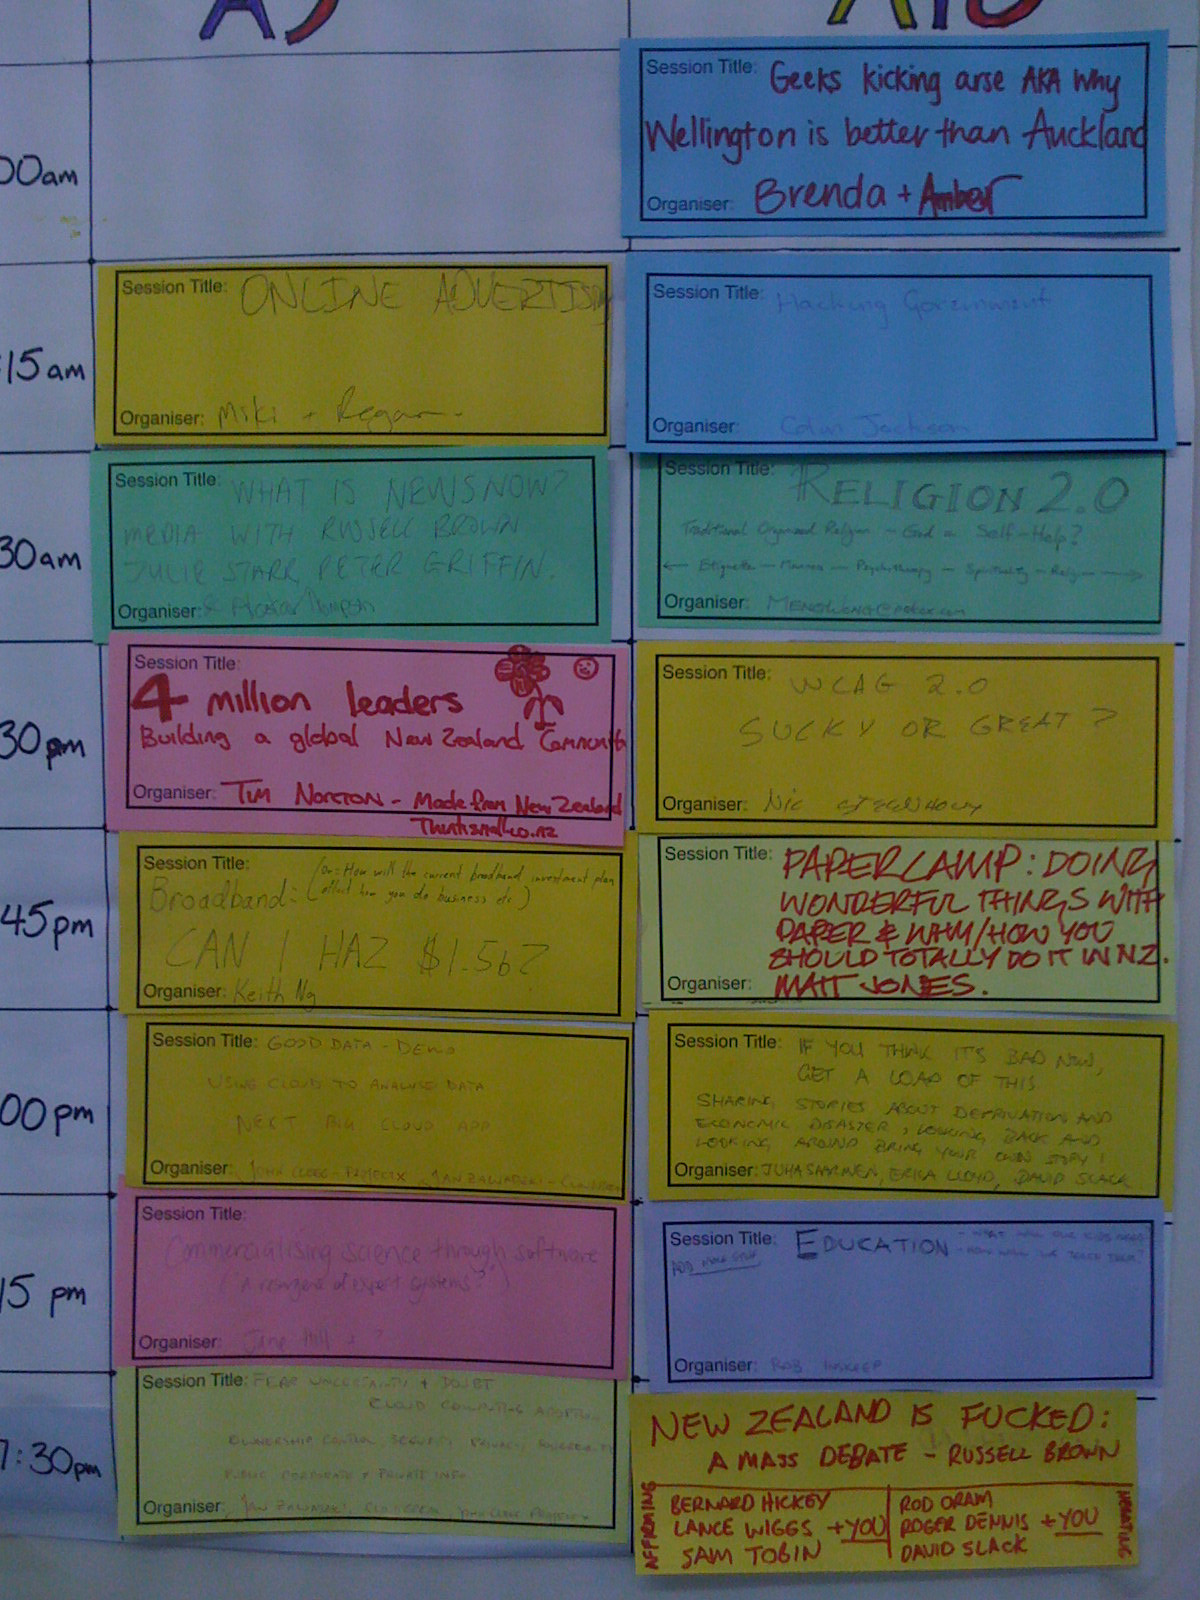 A9
A10
00am
Session Title: Geeks kicking arse AKA why
Wellington is better than Auckland
Organiser: Brenda + Amber
15am
Session Title: ONLINE ADVERTISING
Organiser: Miki + Regan
Session Title: Hacking Government
Organiser: Colin Jackson
30am
Session Title: WHAT IS NEWSNOW?
MEDIA WITH RUSSELL BROWN
JULIE STARR, PETER GRIFFIN.
Organiser:
Session Title: RELIGION 2.0
Traditional Organized Religion - God = Self-Help?
← Etiquette — Manners — Psychotherapy — Spirituality — Religion →
Organiser:
30pm
Session Title:
4 million leaders
Building a global New Zealand Community
Organiser: TIM NORTON - Made from New Zealand
Session Title: WCAG 2.0
SUCKY OR GREAT?
Organiser: Nic
45pm
Session Title:
(Or: How will the current broadband investment plan
affect how you do business etc.)
Broadband:
CAN I HAZ $1.5b?
Organiser: Keith Ng
Session Title: PAPERCAMP: DOING
WONDERFUL THINGS WITH
PAPER & WHY/HOW YOU
SHOULD TOTALLY DO IT IN NZ.
Organiser: MATT JONES.
00pm
Session Title: GOOD DATA - DEMO
USING CLOUD TO ANALYSE DATA
NEXT BIG CLOUD APP
Organiser:
Session Title: IF YOU THINK IT'S BAD NOW,
GET A LOAD OF THIS
SHARING STORIES ABOUT DEPRIVATION AND
ECONOMIC DISASTER, LOOKING BACK AND
LOOKING AROUND BRING YOUR OWN STORY!
Organiser: JUHA SAARINEN, ERICA LLOYD, DAVID SLACK
15 pm
Session Title:
Commercialising science through software
Organiser: Jane Hill + ?
Session Title: EDUCATION - WHAT WILL OUR KIDS NEED
- HOW WILL WE TEACH THEM?
Organiser: ROB
7:30pm
Session Title: FEAR UNCERTAINTY + DOUBT
CLOUD COMPUTING
OWNERSHIP CONTROL SECURITY PRIVACY
PUBLIC CORPORATE + PRIVATE INFO
Organiser:
NEW ZEALAND IS FUCKED:
A MASS DEBATE - RUSSELL BROWN
AFFIRMING
BERNARD HICKEY
LANCE WIGGS + YOU
SAM TOBIN
ROD ORAM
ROGER DENNIS + YOU
DAVID SLACK
NEGATING